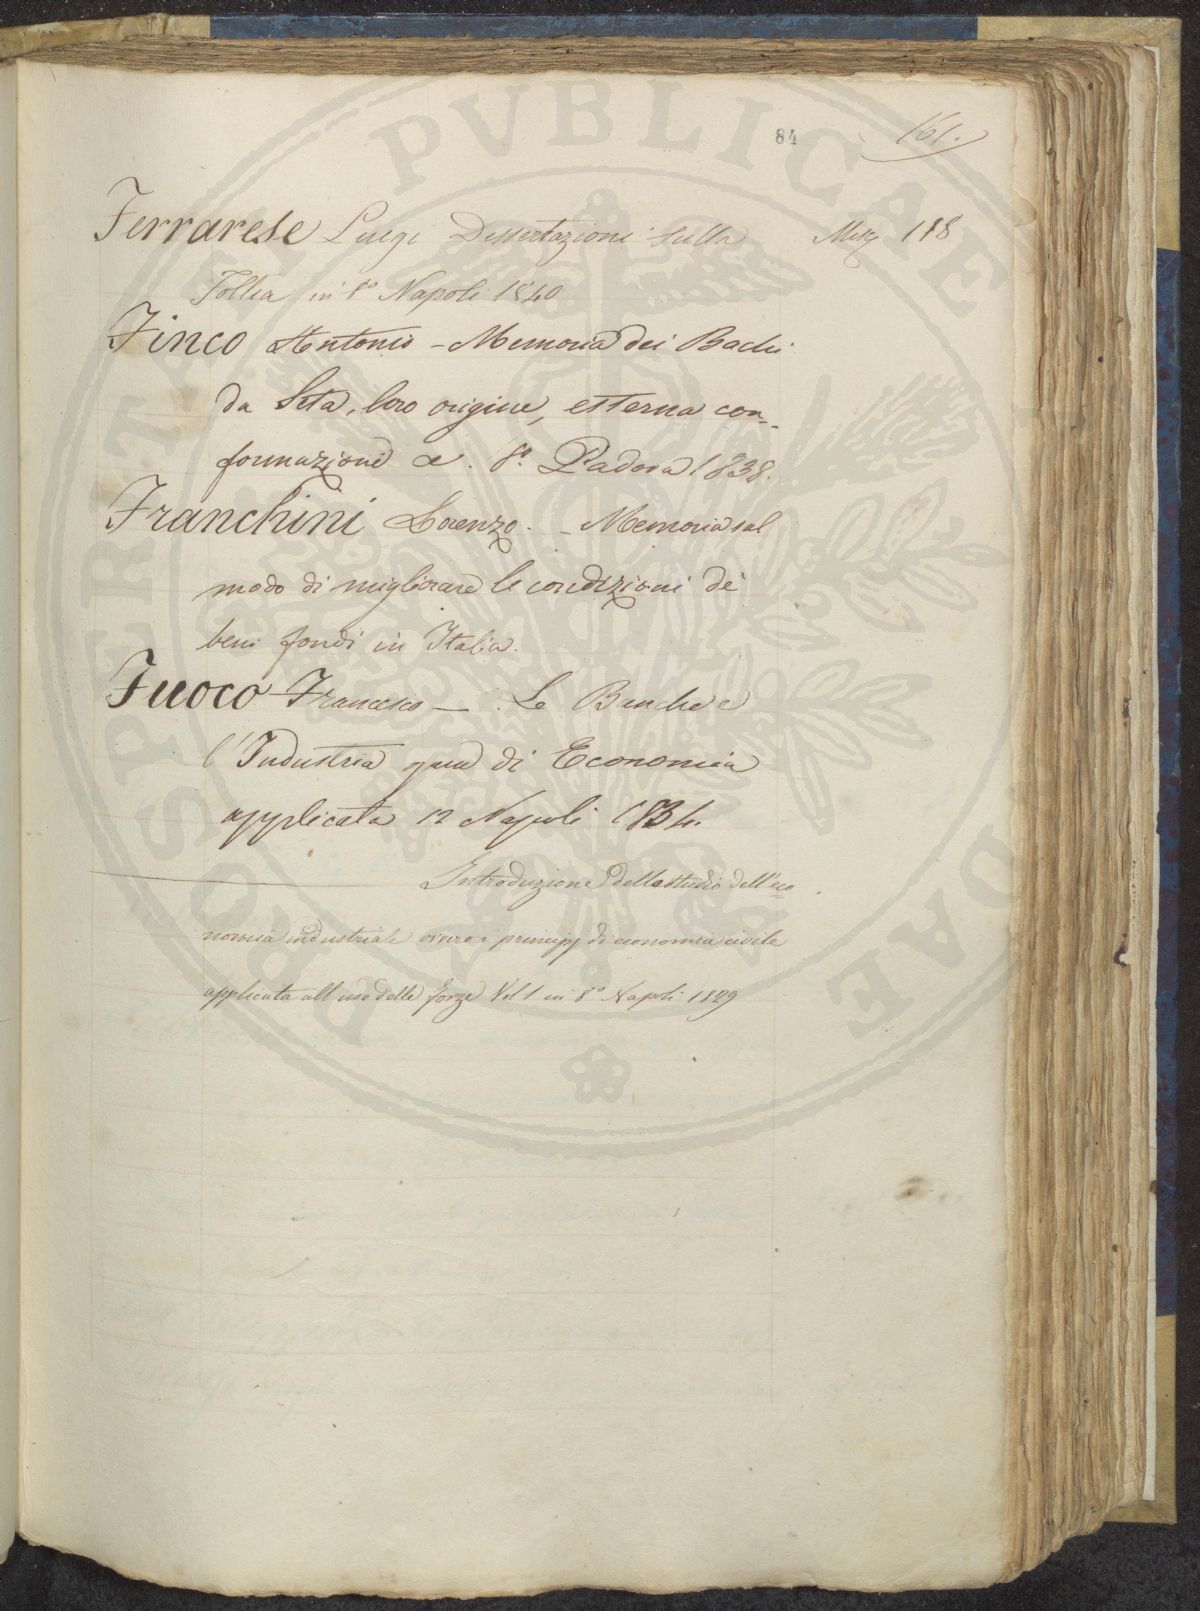 84
161.
Ferrarese Luigi Dissertazioni sulla Misc 118
Follia in 8° Napoli 1840
Finco Antonio - Memoria dei Bachi
da Seta, loro origine, esterna con-
formazione &. 8°. Padova 1838.
Franchini Lorenzo. - Memoria sul
modo di migliorare le condizioni de'
beni fondi in Italia.
Fuoco Francesco - Le Banche e
l'Industria di Economia
applicata 12 Napoli 1834.
Introduzione dello studio dell'eco
nomia industriale ovvero i principj di economia civile
applicata all uso delle forze Vol 1 in 8° Napoli 1829
PROSPERITATI PVBLICAE AVGENDAE